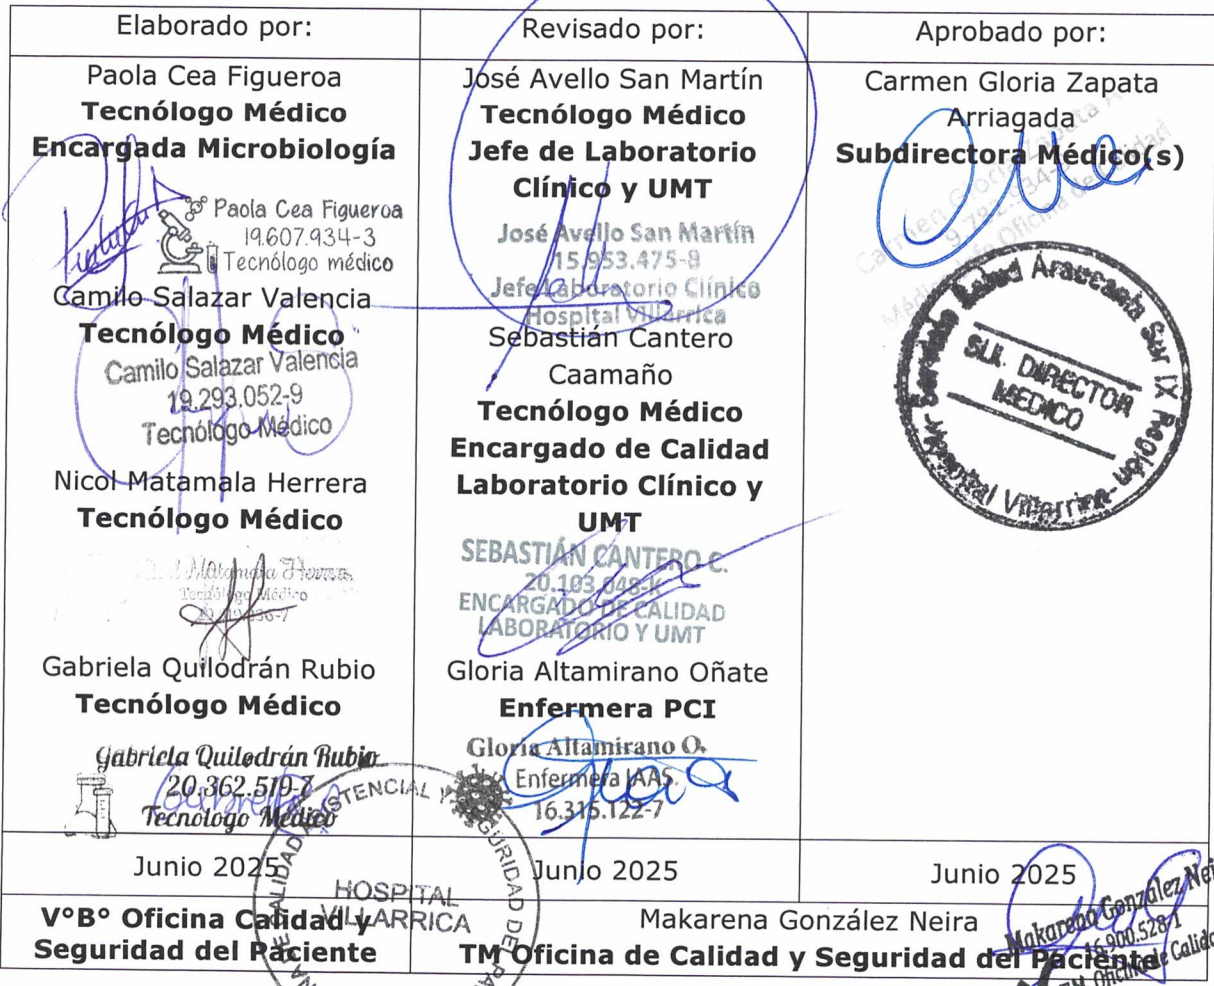 Elaborado por:
Paola Cea Figueroa
Tecnólogo Médico
Encargada Microbiología
Paola Cea Figueroa
19.607.934-3
Tecnólogo médico
Camilo Salazar Valencia
Tecnólogo Médico
Camilo Salazar Valencia
19.293.052-9
Tecnólogo Médico
Nicol Matamala Herrera
Tecnólogo Médico
Matamala Herrera
Tecnólogo Médico
Gabriela Quilodrán Rubio
Tecnólogo Médico
Gabriela Quilodrán Rubio
20.362.519-7
Tecnólogo Médico
Junio 2025
Revisado por:
José Avello San Martín
Tecnólogo Médico
Jefe de Laboratorio
Clínico y UMT
José Avello San Martín
15.953.475-8
Jefe Laboratorio Clínico
Hospital Villarrica
Sebastián Cantero
Caamaño
Tecnólogo Médico
Encargado de Calidad
Laboratorio Clínico y
UMT
SEBASTIÁN CANTERO C.
20.103.048-K
ENCARGADO DE CALIDAD
LABORATORIO Y UMT
Gloria Altamirano Oñate
Enfermera PCI
Gloria Altamirano O.
Enfermera IAAS.
16.315.122-7
Junio 2025
Aprobado por:
Carmen Gloria Zapata
Arriagada
Subdirectora Médico(s)
Carmen Gloria Zapata A
Oficina de Calidad
Servicio Salud Araucanía Sur IX Región
SUB. DIRECTOR
MEDICO
Hospital Villarrica
Junio 2025
V°B° Oficina Calidad y
Seguridad del Paciente
HOSPITAL
VILLARRICA
CALIDAD ASISTENCIAL Y
SEGURIDAD DEL
Makarena González Neira
TM Oficina de Calidad y Seguridad del Paciente
Makarena González Nei
16.900.528-1
T.M. Oficina de Calid